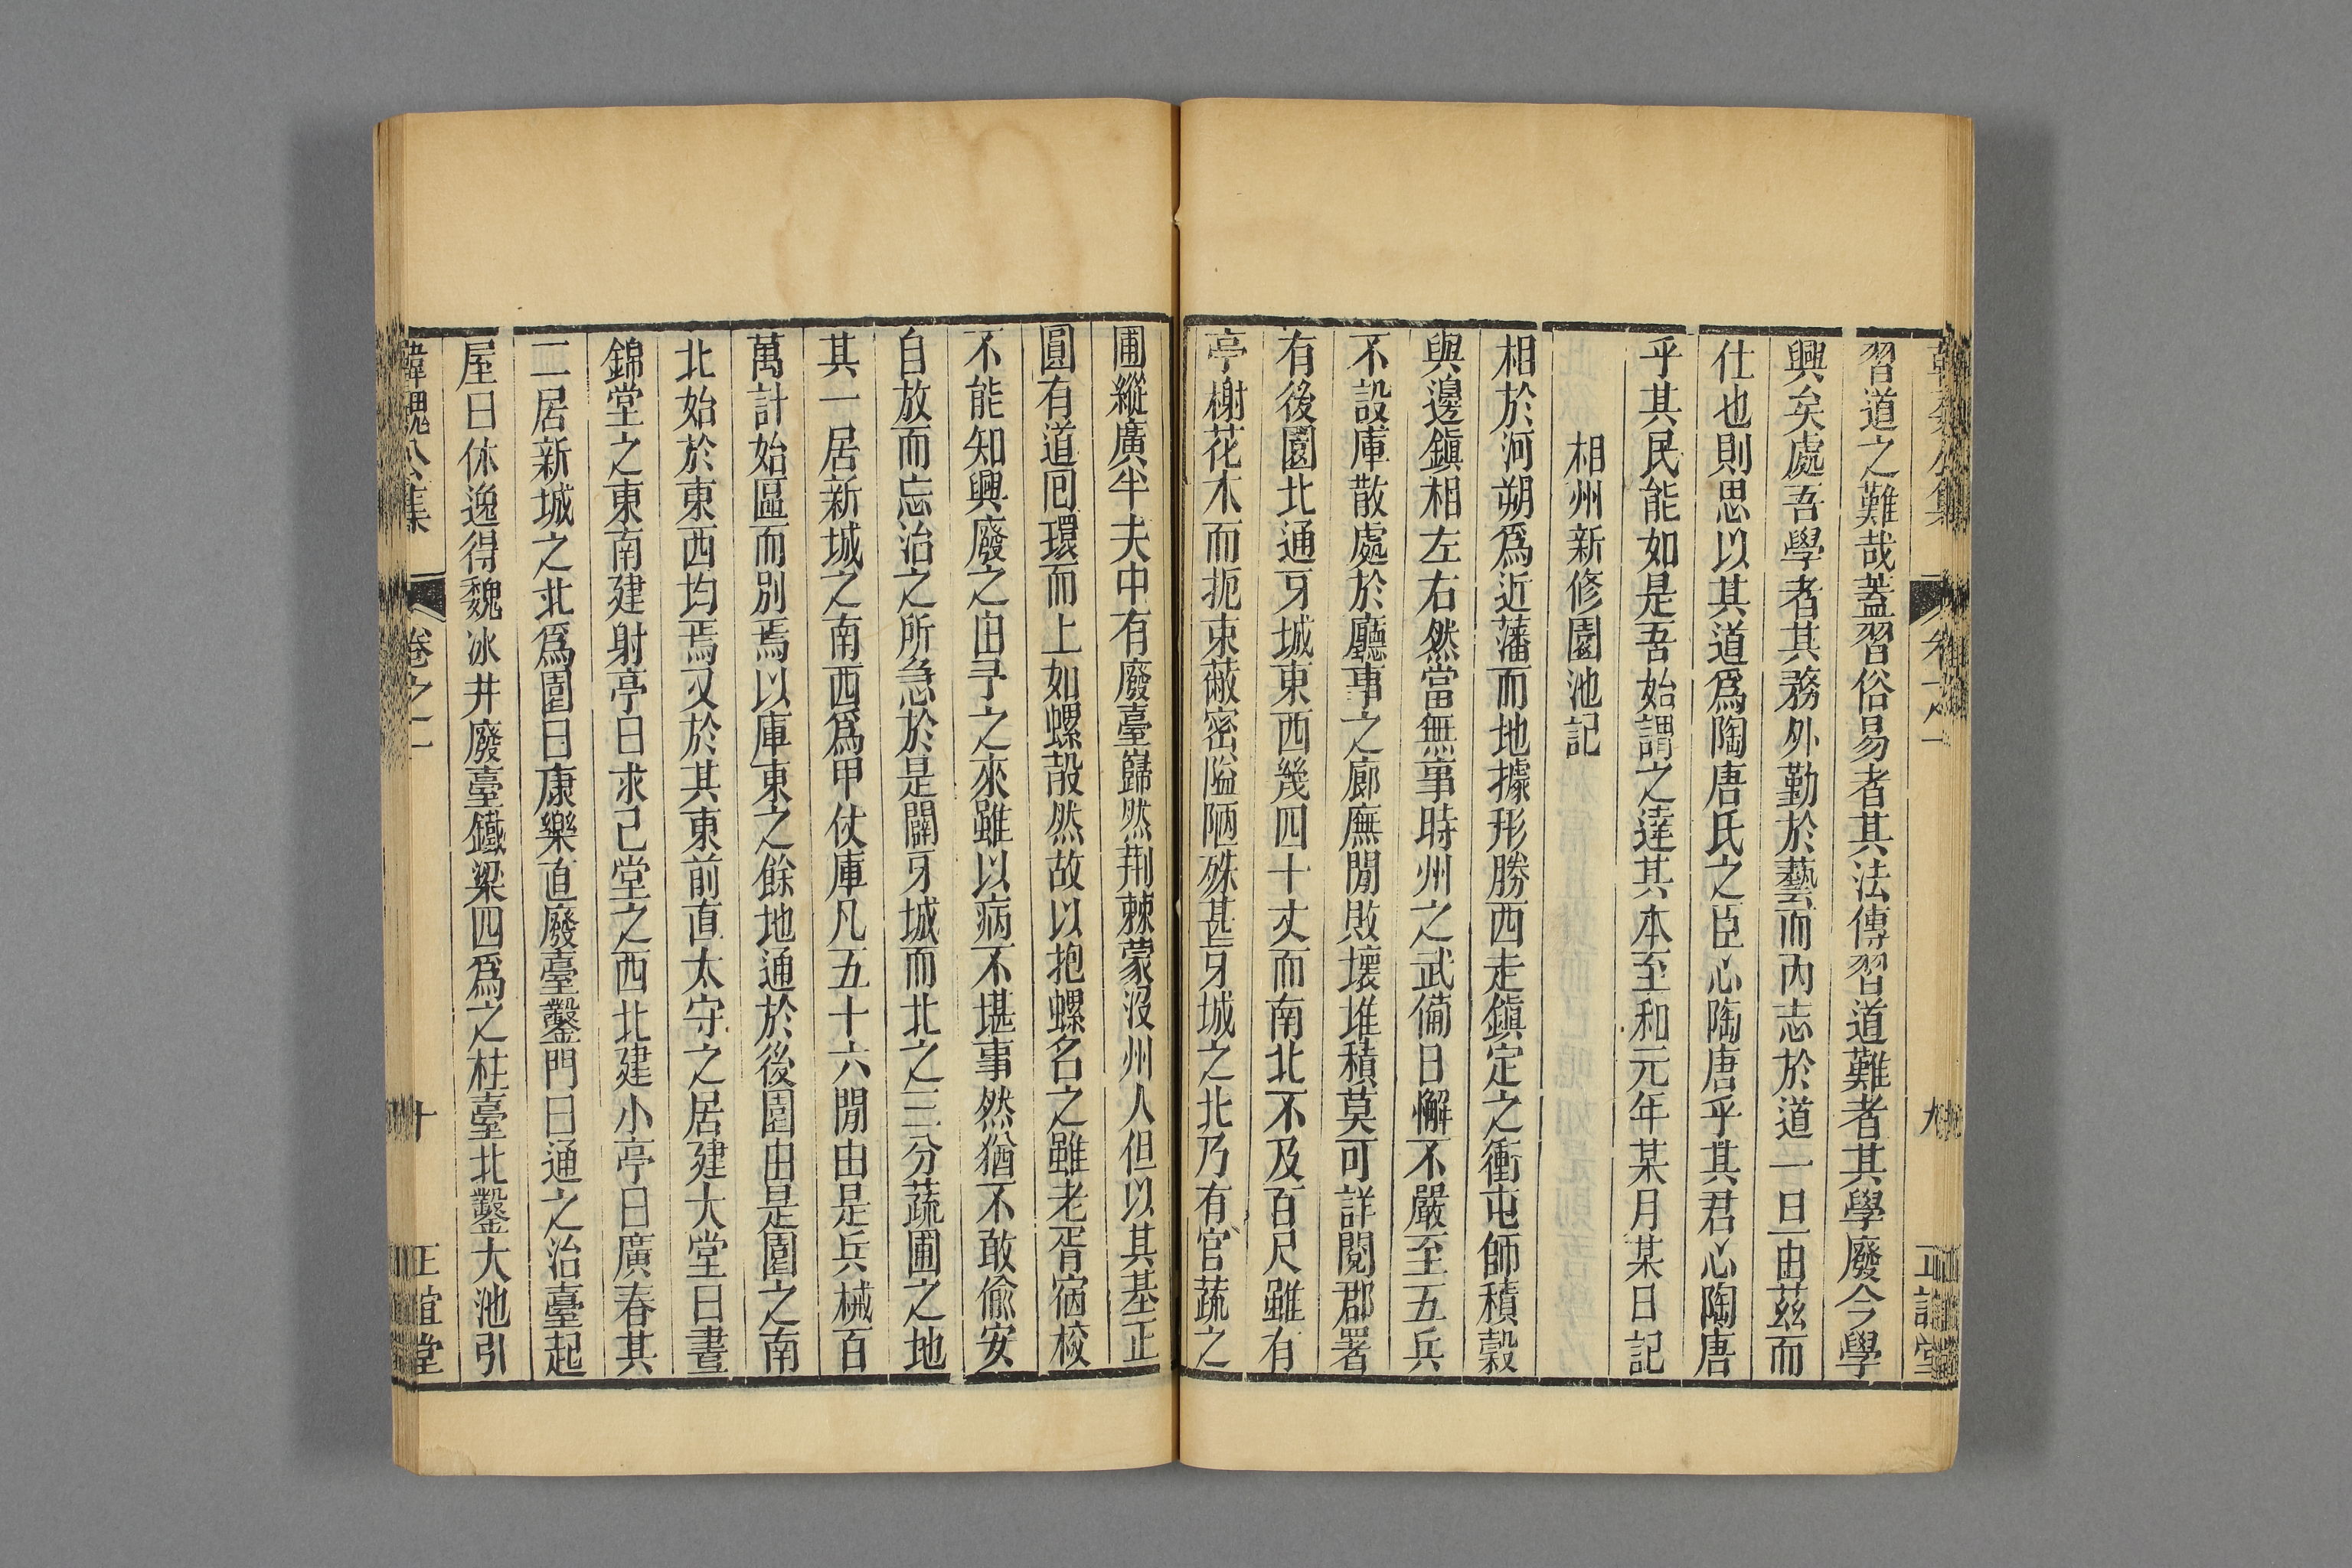 習道之難哉蓋習俗易者其法傳習道難者其學廢今學
興矣處吾學者其務外勤於藝而內志於道一旦由茲而
仕也則思以其道爲陶唐氏之臣心陶唐乎其君心陶唐
乎其民能如是吾始謂之達其本至和元年某月某日記
相州新修園池記
相於河朔爲近藩而地據形勝西走鎮定之衝屯師積穀
與邊鎮相左右然當無事時州之武備日懈不嚴至五兵
不設庫散處於廳事之廊廡閒敗壞堆積莫可詳閱郡署
有後園北通牙城東西幾四十丈而南北不及百尺雖有
亭榭花木而扼束蔽密隘陋殊甚牙城之北乃有官蔬之
圃縱廣半夫中有廢臺巋然荆棘蒙沒州人但以其基正
圓有道囘環而上如螺殻然故以抱螺名之雖老胥宿校
不能知興廢之由予之來雖以病不堪事然猶不敢偷安
自放而忘治之所急於是闢牙城而北之三分蔬圃之地
其一居新城之南西爲甲仗庫凡五十六閒由是兵械百
萬計始區而別焉以庫東之餘地通於後園由是園之南
北始於東西均焉又於其東前直太守之居建大堂曰晝
錦堂之東南建射亭曰求己堂之西北建小亭曰廣春其
二居新城之北爲園曰康樂直廢臺鑿門曰通之治臺起
屋曰休逸得魏冰井廢臺鐵梁四爲之柱臺北鑿大池引
韓魏公集 卷之一 十 正誼堂